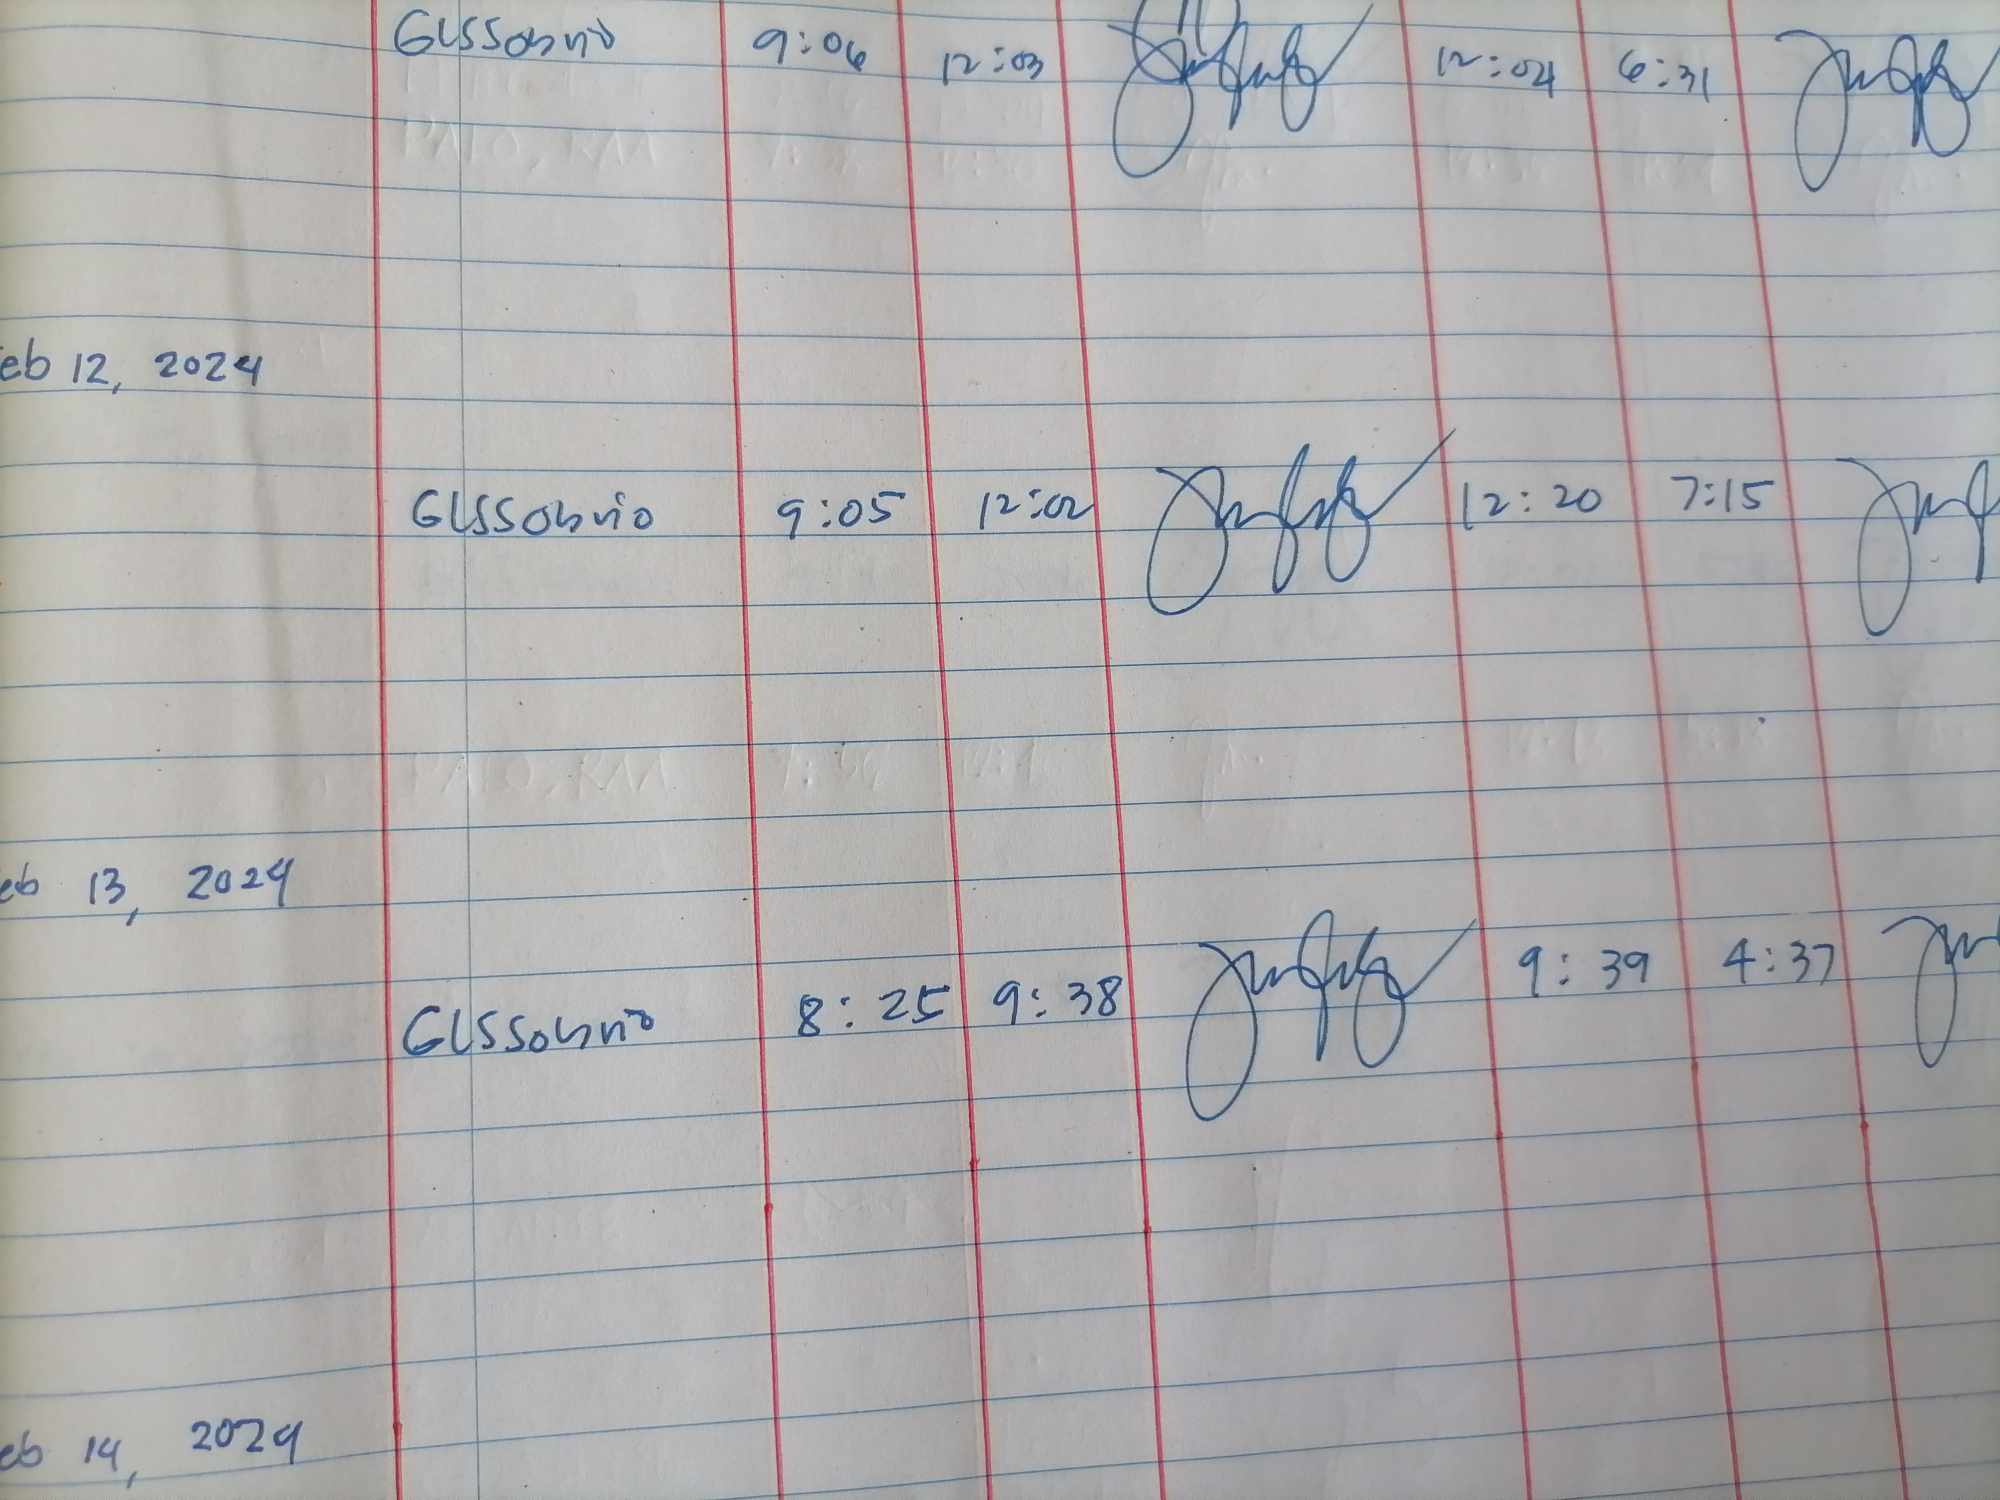 GLSSobrio 9:06 12:03 12:04 6:31
eb 12, 2024
GLSSobrio 9:05 12:02 12:20 7:15
eb 13, 2024
GLSSobrio 8:25 9:38 9:39 4:37
eb 14, 2024